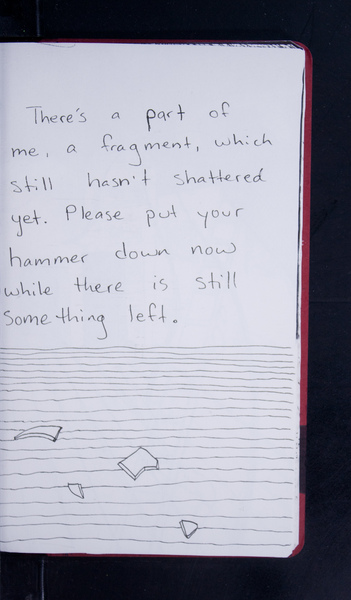 There's a part of
me, a fragment, which
still hasn't shattered
yet. Please put your
hammer down now
while there is still
something left.